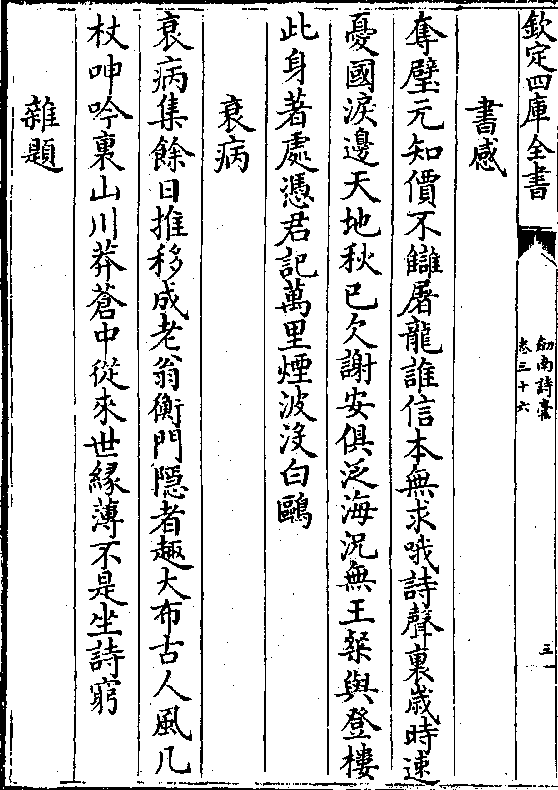 欽定四庫全書
劒南詩藁
卷三十六
三
書感
奪璧元知價不讎屠龍誰信本無求哦詩聲裏歲時速
憂國淚邊天地秋已欠謝安俱泛海況無王粲與登樓
此身著處憑君記萬里煙波没白鷗
衰病
衰病集餘日推移成老翁衡門隠者趣大布古人風几
杖呻吟裏山川莽蒼中從來世緣薄不是坐詩窮
雜題